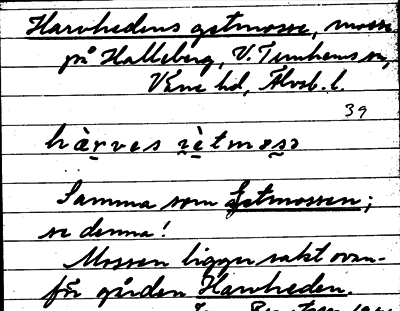 Harvhedens getmosse, mosse
på Halleberg, V. Tunhems sn,
Väne hd, Älvsb. l.
39
hàrves jètmosə
Samma som Getmossen;
se denna!
Mossen ligger rakt ovan-
för gården Harvheden.